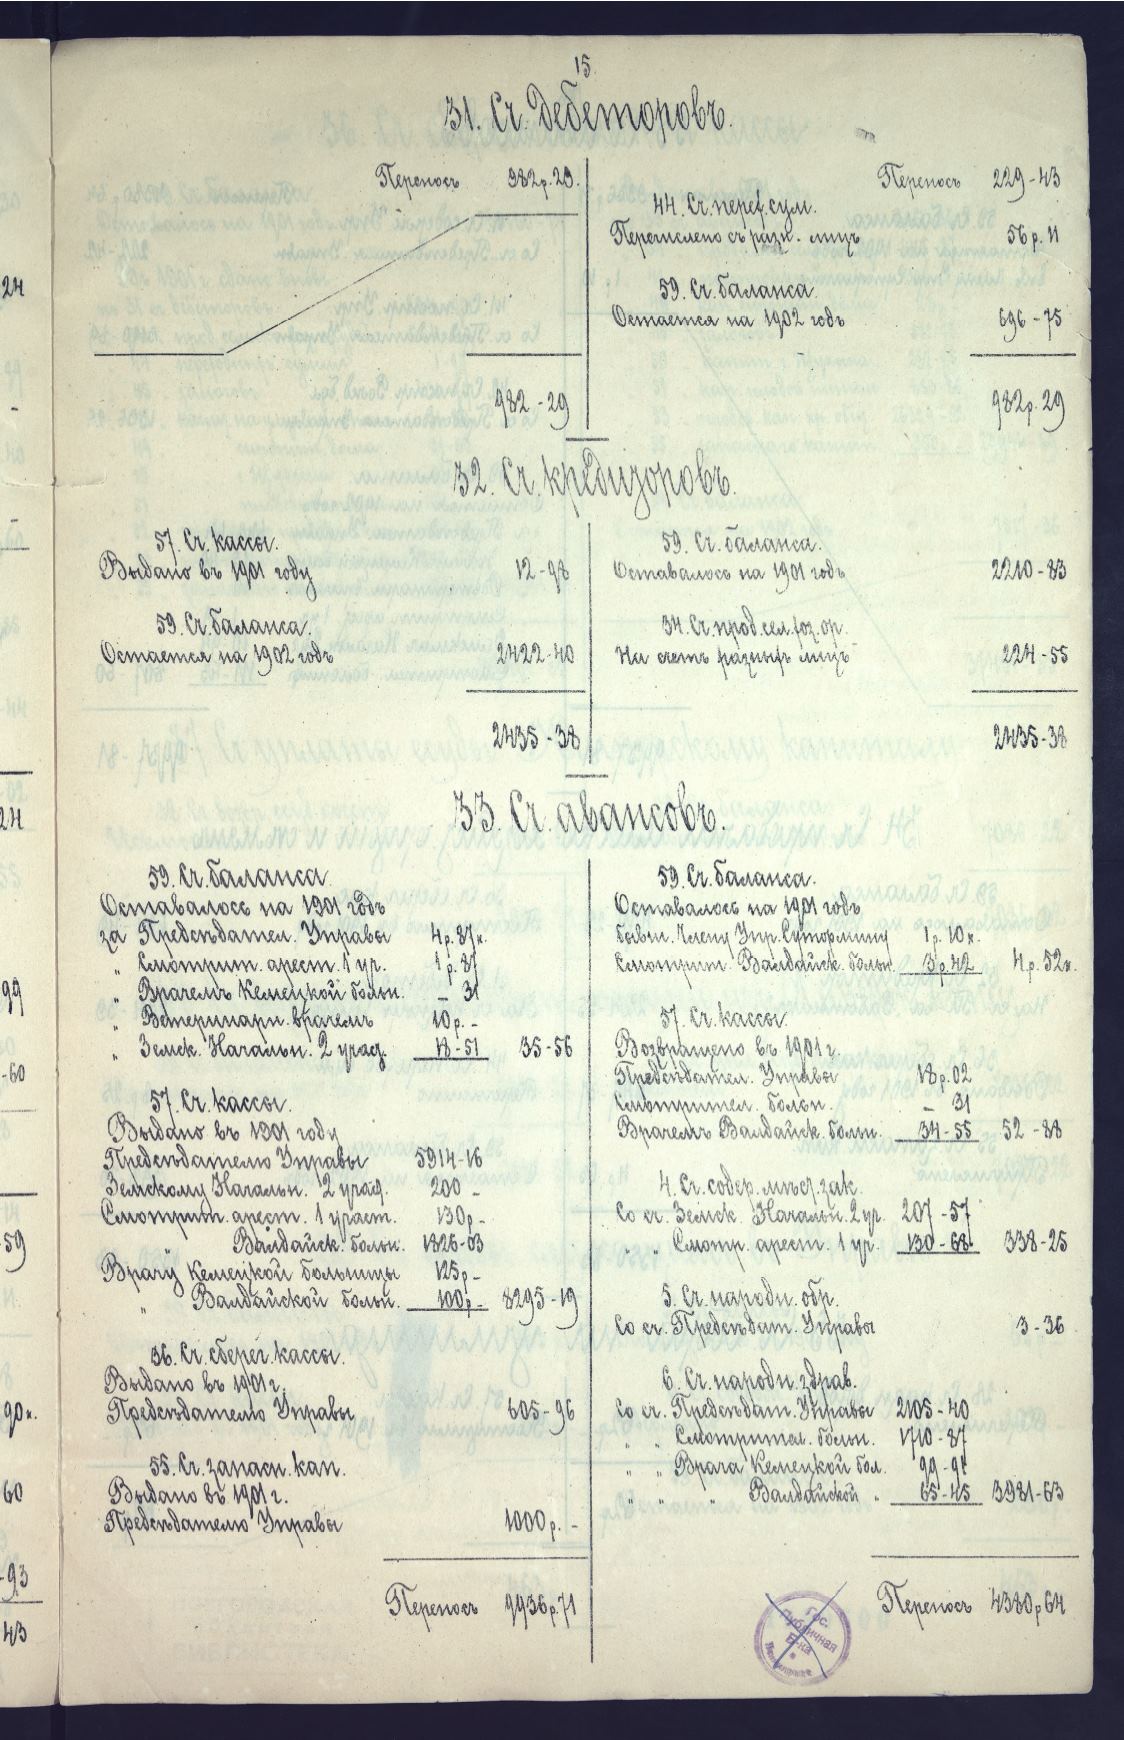 15.
31. Сч. Дебеторовъ.
Переносъ 982р.29.
Переносъ 229-43
44. Сч. переx. сум.
Перечислено съ разн. лицъ 56р.11
59. Сч. баланса.
Остается на 1902 годъ 696-75
982-29
982р.29
32. Сч. кредиторовъ.
57. Сч. кассы.
Выдано въ 1901 году 12-98
59. Сч. баланса.
Остается на 1902 годъ 2422-40
2435-38
59. Сч. баланса.
Оставалось на 1901 годъ 2210-83
34. Сч. прод. сел. хоз. ор.
На счетъ разныхъ лицъ 224-55
2435-38
33. Сч. авансовъ.
59. Сч. баланса
Оставалось на 1901 годъ
за Предсѣдател. Управы 4р.87к.
„ Смотрит. арест. 1 уч. 1р.87
„ Врачемъ Кемецкой больн. – 31
„ Ветеринарн. врачемъ 10р.-
„ Земск. Начальн. 2 участ. 18-51 35-56
57. Сч. кассы.
Выдано въ 1901 году
Предсѣдателю Управы 5914-16
Земскому Начальн. 2 участ. 200 -
Смотрит. арест. 1 участ. 130р-
„ Валдайск. больн. 1826-03
Врачу Кемецкой больницы 125р-
„ Валдайской больн. 100р- 8295-19
36. Сч. сберег. кассы.
Выдано въ 1901г.
Предсѣдателю Управы 605-96
55. Сч. запасн. кап.
Выдано въ 1901г.
Предсѣдателю Управы 1000р. -
Переносъ 9936р71
59. Сч. баланса.
Оставалось на 1901 годъ
бывш. Члену Упр. Сутормину 1р.10к.
Смотрит. Валдайск. больн. 3р.42 4р.52к.
57. Сч. кассы.
Возвращено въ 1901г.
Предсѣдател. Управы 18р.02
Смотрител. больн. – 31
Врачемъ Валдайск. больн. 34-55 52-88
4. Сч. содер. мѣст. зак.
Со сч. Земск. Начальн. 2 уч. 207-57
„ „ Смотр. арест. 1 уч. 130-68 338-25
5. Сч. народн. обр.
Со сч. Предсѣдат. Управы 3-36
6. Сч. народн. здрав.
Со сч. Предсѣдат. Управы 2105-40
„ „ Смотрител. больн. 1710-87
„ „ Врача Кемецкой бол. 99-91
„ „ „ Валдайской „ 65-45 3981-63
Переносъ 4380р64
Гос.
Публичная
Б-ка